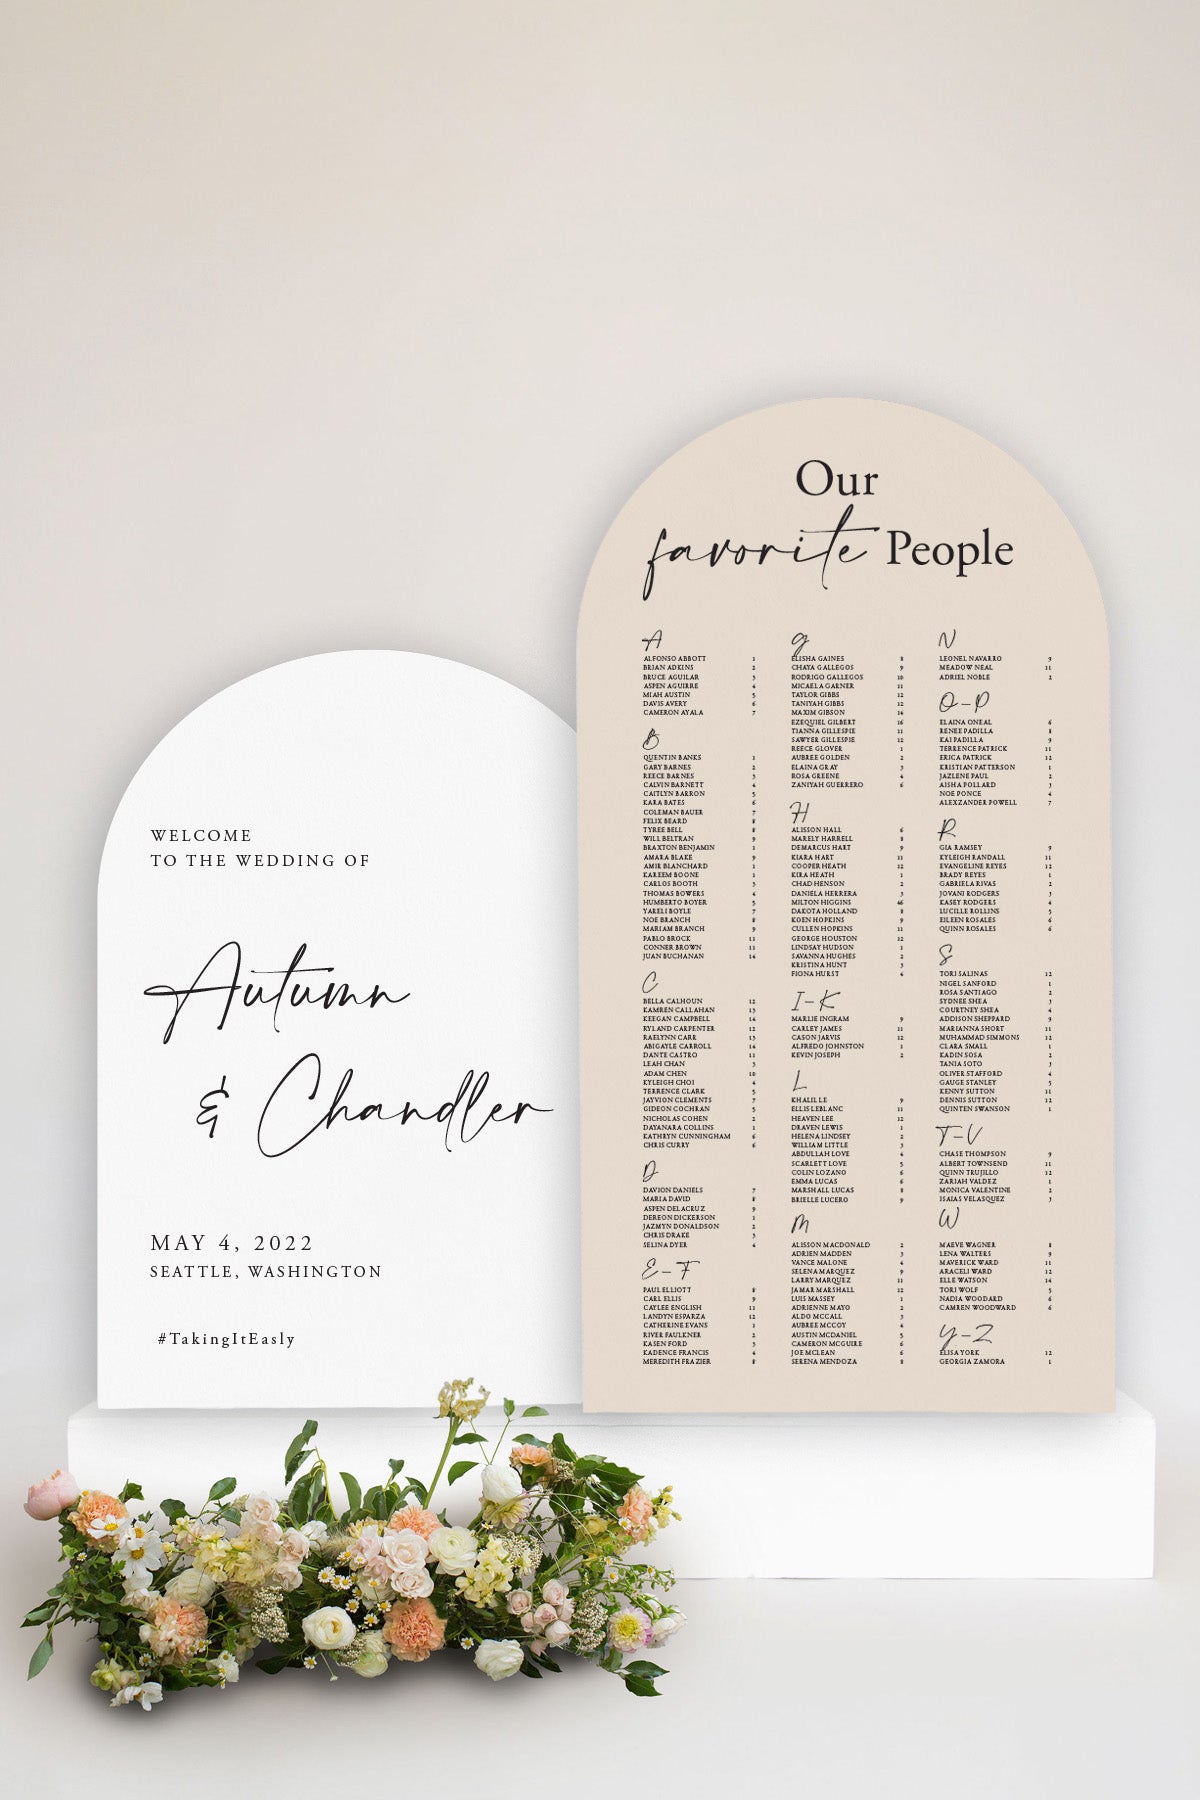 WELCOME
TO THE WEDDING OF
Autumn
& Chandler
MAY 4, 2022
SEATTLE, WASHINGTON
#TakingItEasly
Our
favorite People
A
ALFONSO ABBOTT 1
BRIAN ADKINS 2
BRUCE AGUILAR 3
ASPEN AGUIRRE 4
MIAH AUSTIN 5
DAVIS AVERY 6
CAMERON AYALA 7
B
QUENTIN BANKS 1
GARY BARNES 2
REECE BARNES 3
CALVIN BARNETT 4
CAITLYN BARRON 5
KARA BATES 6
COLEMAN BAUER 7
FELIX BEARD 8
TYREE BELL 8
WILL BELTRAN 9
BRAXTON BENJAMIN 1
AMARA BLAKE 9
AMIR BLANCHARD 1
KAREEM BOONE 1
CARLOS BOOTH 3
THOMAS BOWERS 4
HUMBERTO BOYER 5
YARELI BOYLE 7
NOE BRANCH 8
MARIAM BRANCH 9
PABLO BROCK 11
CONNER BROWN 11
JUAN BUCHANAN 14
C
BELLA CALHOUN 12
KAMREN CALLAHAN 13
KEEGAN CAMPBELL 14
RYLAND CARPENTER 12
RAELYNN CARR 13
ABIGAYLE CARROLL 14
DANTE CASTRO 11
LEAH CHAN 3
ADAM CHEN 10
KYLEIGH CHOI 4
TERRENCE CLARK 5
JAYVION CLEMENTS 7
GIDEON COCHRAN 5
NICHOLAS COHEN 2
DAYANARA COLLINS 1
KATHRYN CUNNINGHAM 6
CHRIS CURRY 6
D
DAVION DANIELS 7
MARIA DAVID 8
ASPEN DELACRUZ 9
DEREON DICKERSON 1
JAZMYN DONALDSON 2
CHRIS DRAKE 3
SELINA DYER 4
E-F
PAUL ELLIOTT 8
CARL ELLIS 9
CAYLEE ENGLISH 11
LANDYN ESPARZA 12
CATHERINE EVANS 1
RIVER FAULKNER 2
KASEN FORD 3
KADENCE FRANCIS 4
MEREDITH FRAZIER 8
G
ELISHA GAINES 8
CHAYA GALLEGOS 9
RODRIGO GALLEGOS 10
MICAELA GARNER 11
TAYLOR GIBBS 12
TANIYAH GIBBS 12
MAXIM GIBSON 14
EZEQUIEL GILBERT 16
TIANNA GILLESPIE 11
SAWYER GILLESPIE 12
REECE GLOVER 1
AUBREE GOLDEN 2
ELAINA GRAY 3
ROSA GREENE 4
ZANIYAH GUERRERO 6
H
ALISSON HALL 6
MARELY HARRELL 8
DEMARCUS HART 9
KIARA HART 11
COOPER HEATH 12
KIRA HEATH 1
CHAD HENSON 2
DANIELA HERRERA 3
MILTON HIGGINS 46
DAKOTA HOLLAND 8
KOEN HOPKINS 9
CULLEN HOPKINS 11
GEORGE HOUSTON 12
LINDSAY HUDSON 1
SAVANNA HUGHES 2
KRISTINA HUNT 3
FIONA HURST 4
I-K
MARLIE INGRAM 9
CARLEY JAMES 11
CASON JARVIS 12
ALFREDO JOHNSTON 1
KEVIN JOSEPH 2
L
KHALIL LE 9
ELLIS LEBLANC 11
HEAVEN LEE 12
DRAVEN LEWIS 1
HELENA LINDSEY 2
WILLIAM LITTLE 3
ABDULLAH LOVE 4
SCARLETT LOVE 5
COLIN LOZANO 6
EMMA LUCAS 6
MARSHALL LUCAS 8
BRIELLE LUCERO 9
M
ALISSON MACDONALD 2
ADRIEN MADDEN 3
VANCE MALONE 4
SELENA MARQUEZ 9
LARRY MARQUEZ 11
JAMAR MARSHALL 12
LUIS MASSEY 1
ADRIENNE MAYO 2
ALDO MCCALL 3
AUBREE MCCOY 4
AUSTIN MCDANIEL 5
CAMERON MCGUIRE 6
JOE MCLEAN 6
SERENA MENDOZA 8
N
LEONEL NAVARRO 9
MEADOW NEAL 11
ADRIEL NOBLE 2
O-P
ELAINA ONEAL 6
RENEE PADILLA 8
KAI PADILLA 9
TERRENCE PATRICK 11
ERICA PATRICK 12
KRISTIAN PATTERSON 1
JAZLENE PAUL 2
AISHA POLLARD 3
NOE PONCE 4
ALEXZANDER POWELL 7
R
GIA RAMSEY 9
KYLEIGH RANDALL 11
EVANGELINE REYES 12
BRADY REYES 1
GABRIELA RIVAS 2
JOVANI RODGERS 3
KASEY RODGERS 4
LUCILLE ROLLINS 5
EILEEN ROSALES 6
QUINN ROSALES 6
S
TORI SALINAS 12
NIGEL SANFORD 1
ROSA SANTIAGO 2
SYDNEE SHEA 3
COURTNEY SHEA 4
ADDISON SHEPPARD 9
MARIANNA SHORT 11
MUHAMMAD SIMMONS 12
CLARA SMALL 1
KADIN SOSA 2
TANIA SOTO 3
OLIVER STAFFORD 4
GAUGE STANLEY 5
KENNY SUTTON 11
DENNIS SUTTON 12
QUINTEN SWANSON 1
T-V
CHASE THOMPSON 9
ALBERT TOWNSEND 11
QUINN TRUJILLO 12
ZARIAH VALDEZ 1
MONICA VALENTINE 2
ISAIAS VELASQUEZ 3
W
MAEVE WAGNER 8
LENA WALTERS 9
MAVERICK WARD 11
ARACELI WARD 12
ELLE WATSON 14
TORI WOLF 5
NADIA WOODARD 6
CAMREN WOODWARD 6
Y-Z
ELISA YORK 12
GEORGIA ZAMORA 1